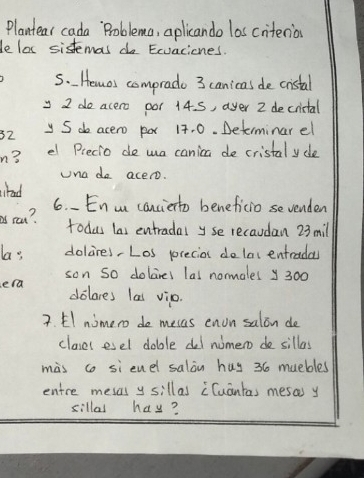 Plantear cada Problema, aplicando los criterios
de los sistemas de Ecuaciones.
5.- Hemos comprado 3 canicas de cristal
y 2 de acero por 14.5, ayer 2 de cristal
y 5 de acero por 17.0. Determinar el
el Precio de una canica de cristal y de
una de acero.
6.- En un concierto beneficio se venden
todas las entradas y se recaudan 23 mil
dolares. Los precios de las entradas
son 50 dolares las normales y 300
dólares las vip.
7. El número de mesas en un salón de
clases es el doble del número de sillas
más 6 si en el salón hay 36 muebles
entre mesas y sillas ¿Cuántas mesas y
sillas hay?
32
n?
las
era